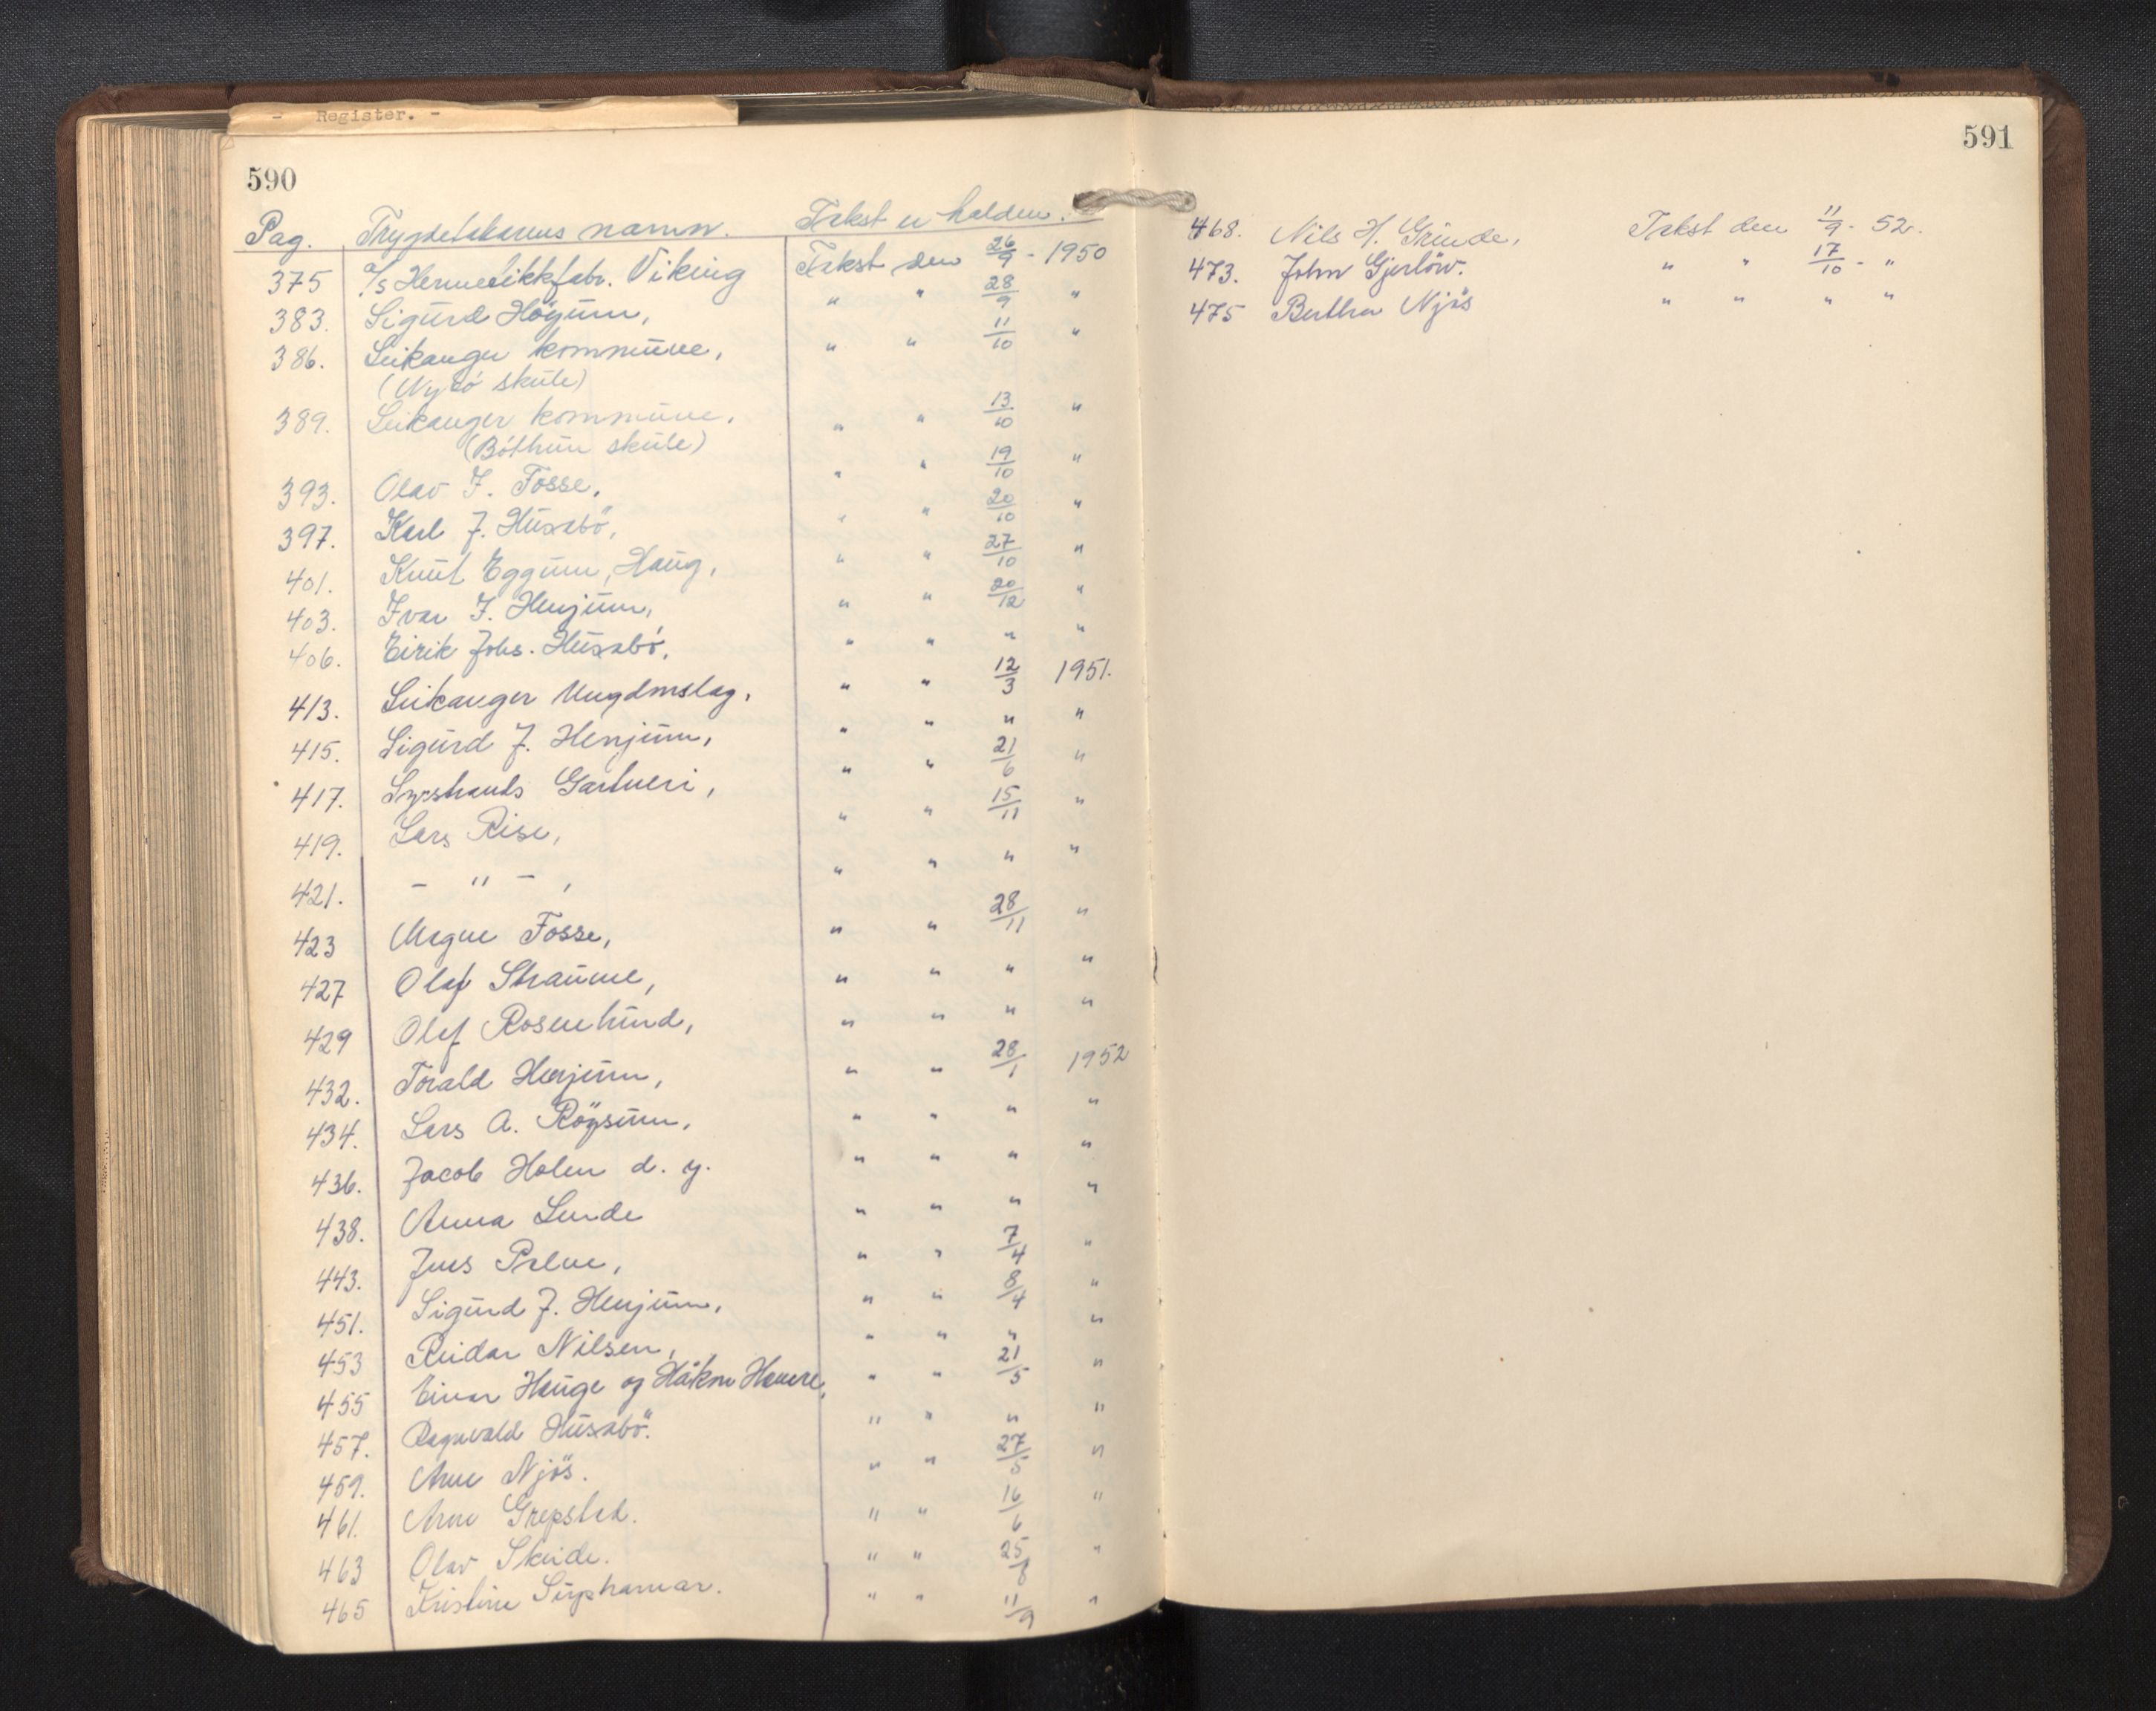 - Register. -
590
Pag. Trygdetakarens namn. Takst er halden.
375 A/s Hermetikkfabr. Viking Takst den 26/9 - 1950
383. Sigurd Höyum, " " 28/9 "
386. Leikanger kommune, " " 11/10 "
(Nybö skule)
389. Leikanger kommune. " " 13/10 "
(Böthun skule)
393. Olav J. Fosse, " " 19/10 "
397. Karl J. Husabö, " " 20/10 "
401. Knut Eggum, Haug, " " 27/10 "
403. Ivar J. Henjum, " " 20/12 "
406. Eirik Johs. Husabö, " " " "
413. Leikanger Ungdmslag, " " 12/3 1951.
415. Sigurd J. Henjum, " " " "
417. Syrstrands Gartneri, " " 21/6 "
419. Lars Rise, " " 15/11 "
421. - " - , " " " "
423 Magne Fosse, " " 28/11 "
427 Olaf Straume, " " " "
429 Olaf Rosenlund, " " " "
432. Torald Henjum, " " 28/1 1952
434. Lars A. Röysum, " " " "
436. Jacob Holen d. y. " " " "
438. Anna Lunde " " " "
443. Jens , " " 7/4 "
451. Sigurd J. Henjum, " " 8/4 "
453 Reidar Nilsen, " " " "
455 Einar Hauge og Håkon Hamre, " " 21/5 "
457. Ragnvald Husabö. " " " "
459. Arne Njös. " " 27/5 "
461. Arne Grepstad. " " 16/6 "
463 Olav Skeide. " " 25/8 "
465 Kristine Suphamar. " " 11/9 "
591
468. Nils H. Grinde, Takst den 11/9 - 52.
473. John Gjerlöw. " " 17/10 - "
475 Bertha Njös " " " "